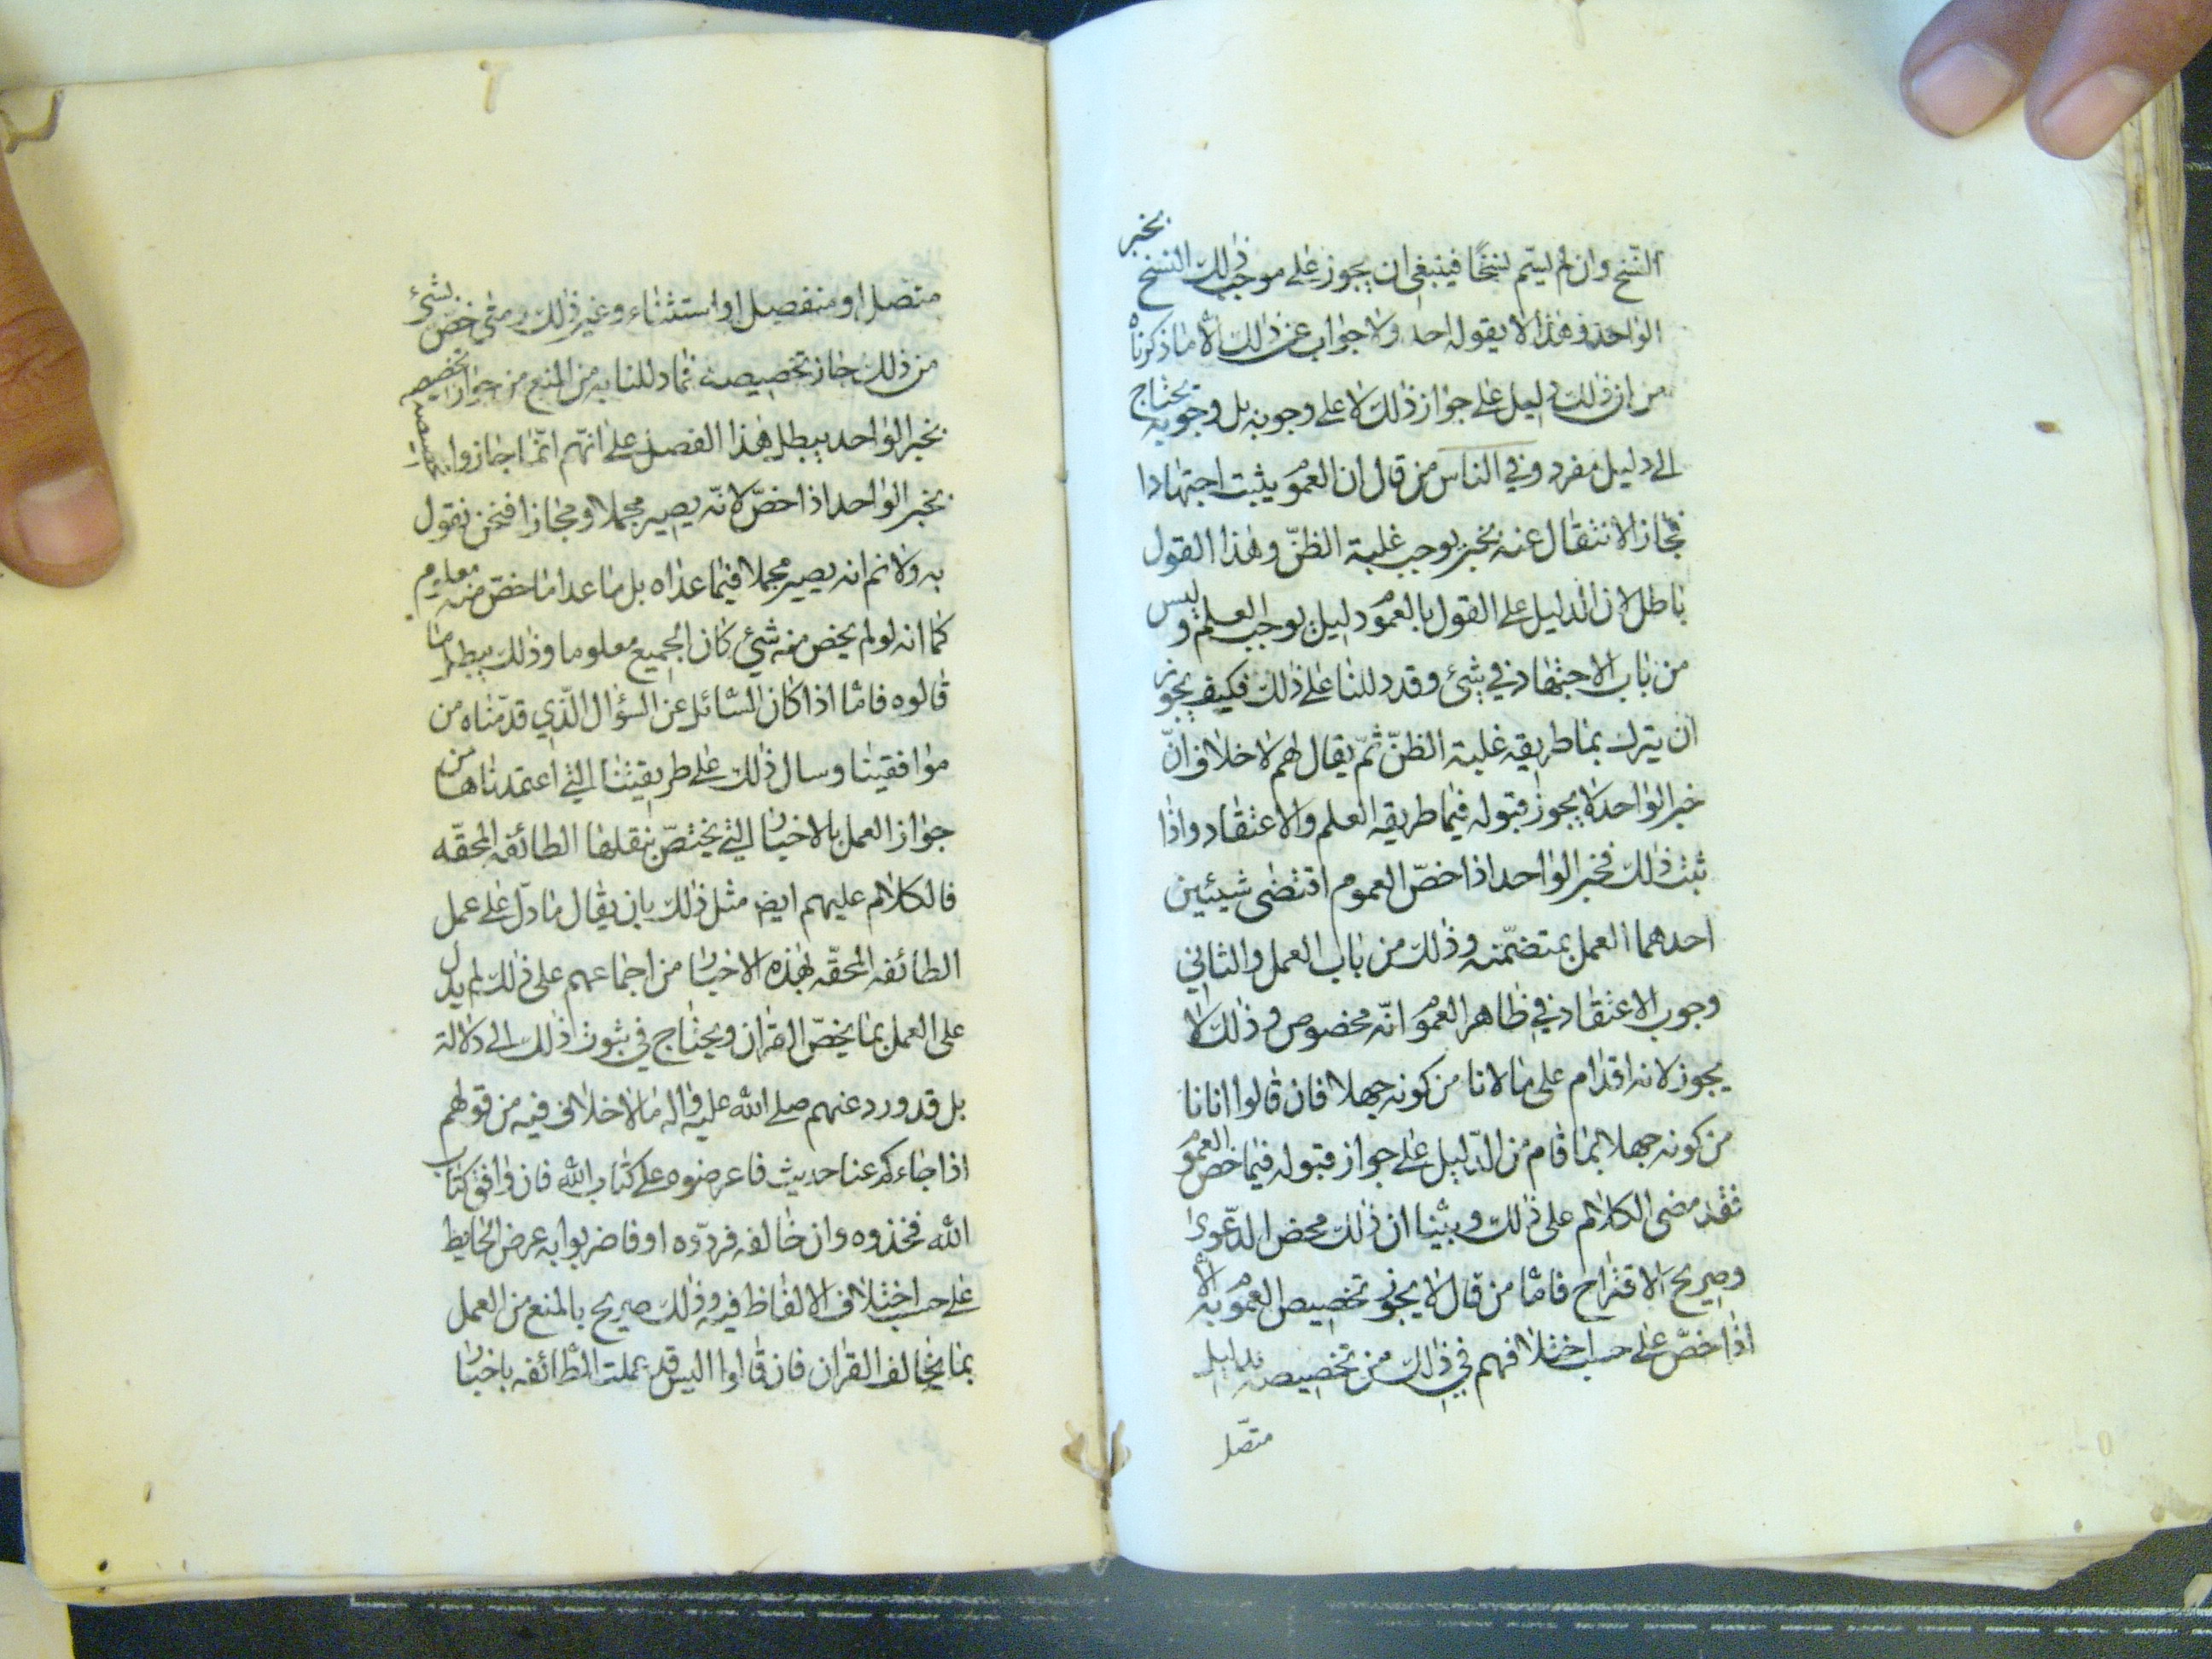 النسخ وان لم يسم نسخا فينبغي ان يجوز على موجب ذلك النسخ بخبر
الواحد وهذا لا يقوله احد ولا جواب عن ذلك الا ما ذكرناه
من ان ذلك دليل على جواز ذلك لا على وجوبه بل وجوبه يحتاج
الى دليل مفرد وفي الناس من قال ان العموم يثبت اجتهادا
فجاز الانتقال عنه بخبر يوجب غلبة الظنّ وهذا القول
باطل لان الدليل على القول بالعموم دليل يوجب العلم وليس
من باب الاجتهاد في شئ وقد دللنا على ذلك فكيف يجوز
ان يترك بما طريقه غلبة الظنّ ثمّ يقال لهم لا خلاف انّ
خبر الواحد لا يجوز قبوله فيما طريقه العلم والاعتقاد واذا
ثبت ذلك فخبر الواحد اذا خصّ العموم اقتضى شيئين
احدهما العمل بمتضمّنه وذلك من باب العمل والثاني
وجوب الاعتقاد في ظاهر العموم انّه مخصوص وذلك لا
يجوز لانه اقدام على ما لا نا من كونه جهلا فان قالوا انا نا
من كونه جهلا بما قام من الدّليل على جواز قبوله فيما خص العموم
فقد مضى الكلام على ذلك وبيّنا ان ذلك محض الدّعوى
وصريح الاقتراح فامّا من قال لا يجوز تخصيص العموم به الّا
اذا خصّ على حسب اختلافهم في ذلك من تخصيصه بدليل
متصل
متصل او منفصل او استثناء وغير ذلك ومتى خص بشئ
من ذلك جاز تخصيصه فما دللنا به من المنع من جواز تخصيصه
بخبر الواحد يبطل هذا الفصل على انّهم انّما اجازوا تخصيصه
بخبر الواحد اذا خصّ لانّه يصير مجملا ومجازا فنحن نقول
به ولا نم انه يصير مجملا فيما عداه بل ما عدا ما خصّ منه معلوم
كما انه لو لم يخص منه شئ كان الجميع معلوما وذلك يبطل ما
قالوه فامّا اذا كان السّائل عن السؤال الّذي قدّمناه من
موافقينا وسال ذلك على طريقيتنا الّتي اعتمدناها من
جواز العمل بالاخبار الّتي يختصّ بنقلها الطائفه المحقّه
فالكلام عليهم ايض مثل ذلك بان يقال ما دلّ على عمل
الطائفه المحقّه بهذه الاخبار من اجماعهم على ذلك لم يدل
على العمل بما يخصّ القران ويحتاج في ثبوت ذلك الى دلالة
بل قد ورد عنهم صلى الله عليه واله ما لا خلاف فيه من قولهم
اذا جاءكم عنا حديث فاعرضوه على كتاب الله فان وافق كتاب
الله فخذوه وان خالفه فردّوه او فاضربوا به عرض الحايط
على حسب اختلاف الالفاظ فيه وذلك صريح بالمنع من العمل
بما يخالف القران فان قالوا اليس قد عملت الطّائفه باخبار